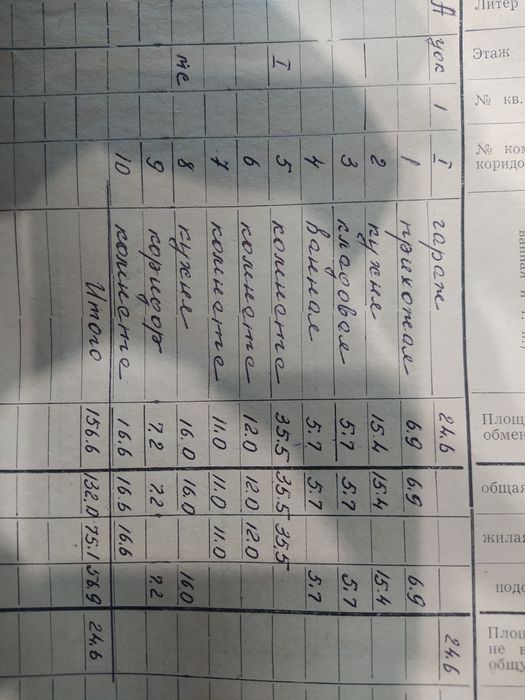 Литер
Этаж
№ кв.
№ ком
коридо
Площ
обмен
общая
жилая
подс
Площ
не в
общу
А цок 1 I гараж 24.6 24.6
1 прихожая 6.9 6.9 6.9
2 кухня 15.4 15.4 15.4
3 кладовая 5.7 5.7 5.7
4 ванная 5.7 5.7 5.7
I 5 комната 35.5 35.5 35.5
6 комната 12.0 12.0 12.0
7 комната 11.0 11.0 11.0
же 8 кухня 16.0 16.0 16.0
9 коридор 7.2 7.2 7.2
10 комната 16.6 16.6 16.6
Итого 156.6 132.0 75.1 56.9 24.6